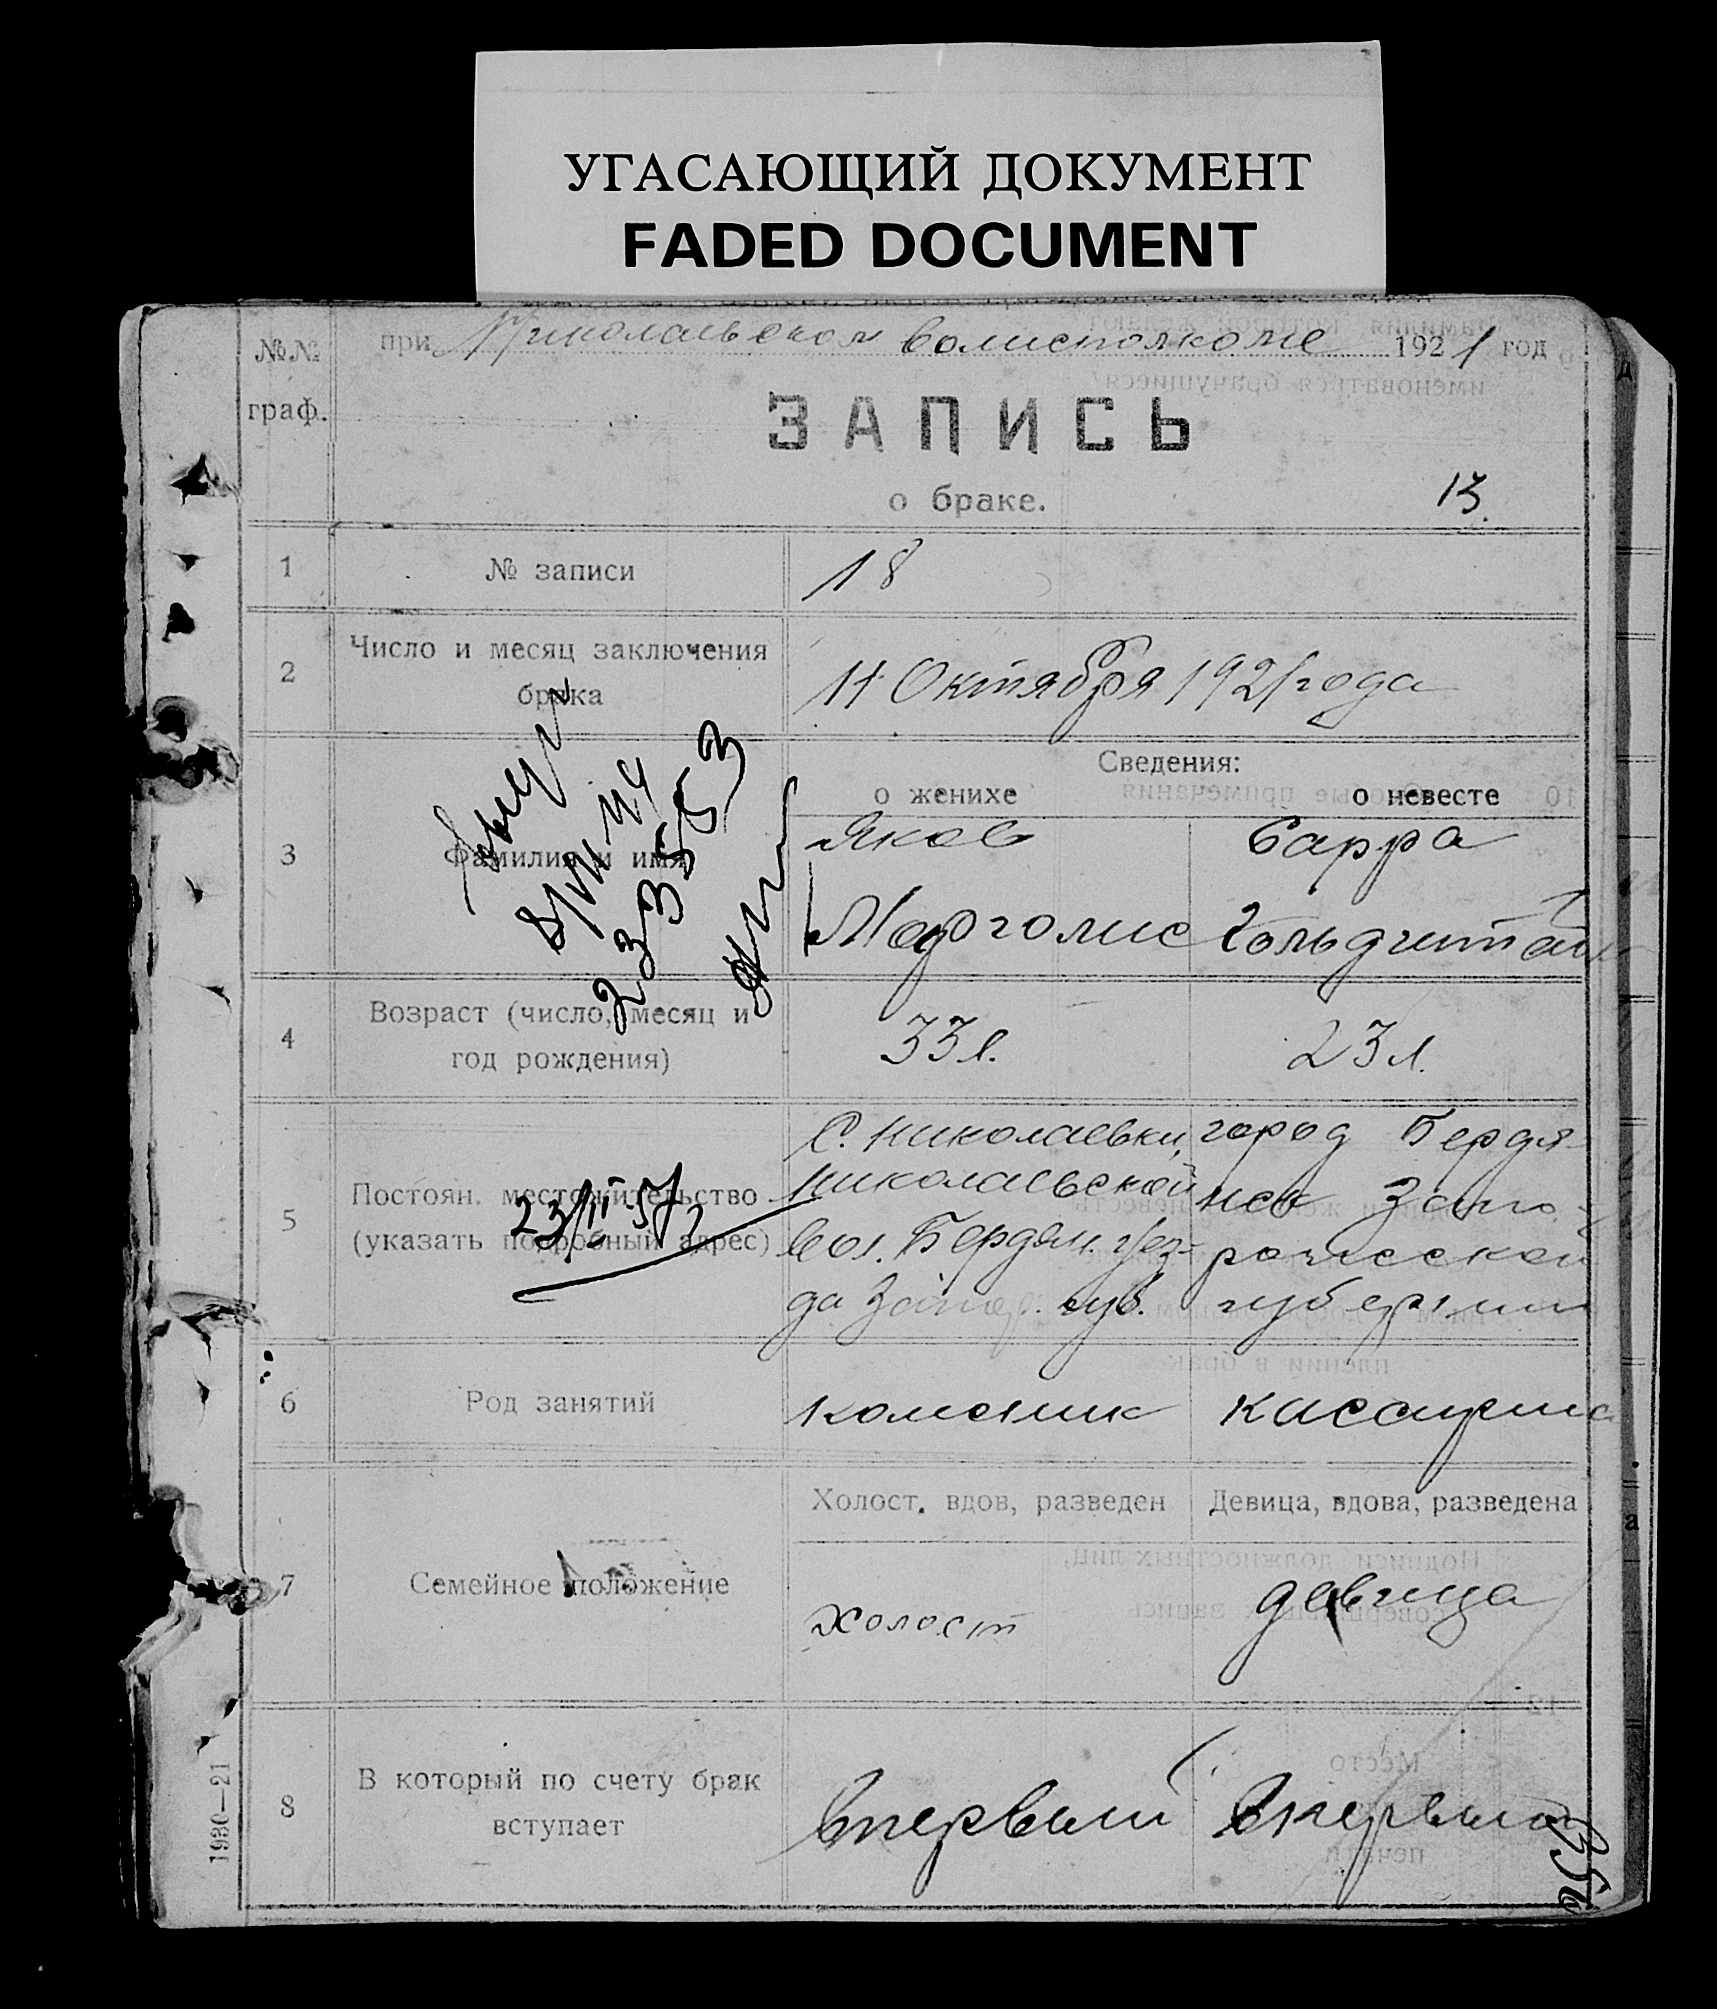 УГАСАЮЩИЙ ДОКУМЕНТ
FADED DOCUMENT
№№ граф.
при Николаевском волисполкоме 1921 год
ЗАПИСЬ
о браке.
13.
1 № записи 18
2 Число и месяц заключения брака
11 Октября 1921 года
Сведения:
о женихе о невесте
3 Фамилия и имя
Яков Сарра
Марголис Гольдштейн
23553
4 Возраст (число, месяц и год рождения)
33 л. 23 л.
5 Постоян. местожительство (указать подробный адрес)
С. Николаевки, город Бердя-
Николаевской нск Запо-
вол. Бердян. уез- рожской
да Запор. губ. губернии
23/II-57
6 Род занятий
кассирша
7 Семейное положение
Холост, вдов, разведен Девица, вдова, разведена
холост девица
8 В который по счету брак вступает
впервый впервый
1930—21